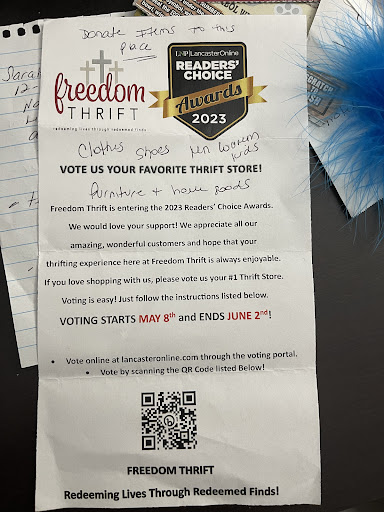 Donate Items to this
place
freedom
THRIFT
redeeming lives through redeemed finds
LNP | LancasterOnline
READERS'
CHOICE
Awards
2023
Clothes Shoes Men Women
kids
VOTE US YOUR FAVORITE THRIFT STORE!
furniture + home goods
Freedom Thrift is entering the 2023 Readers' Choice Awards.
We would love your support! We appreciate all our
amazing, wonderful customers and hope that your
thrifting experience here at Freedom Thrift is always enjoyable.
If you love shopping with us, please vote us your #1 Thrift Store.
Voting is easy! Just follow the instructions listed below.
VOTING STARTS MAY 8th and ENDS JUNE 2nd!
• Vote online at lancasteronline.com through the voting portal.
• Vote by scanning the QR Code listed Below!
FREEDOM THRIFT
Redeeming Lives Through Redeemed Finds!
Sarah
12-